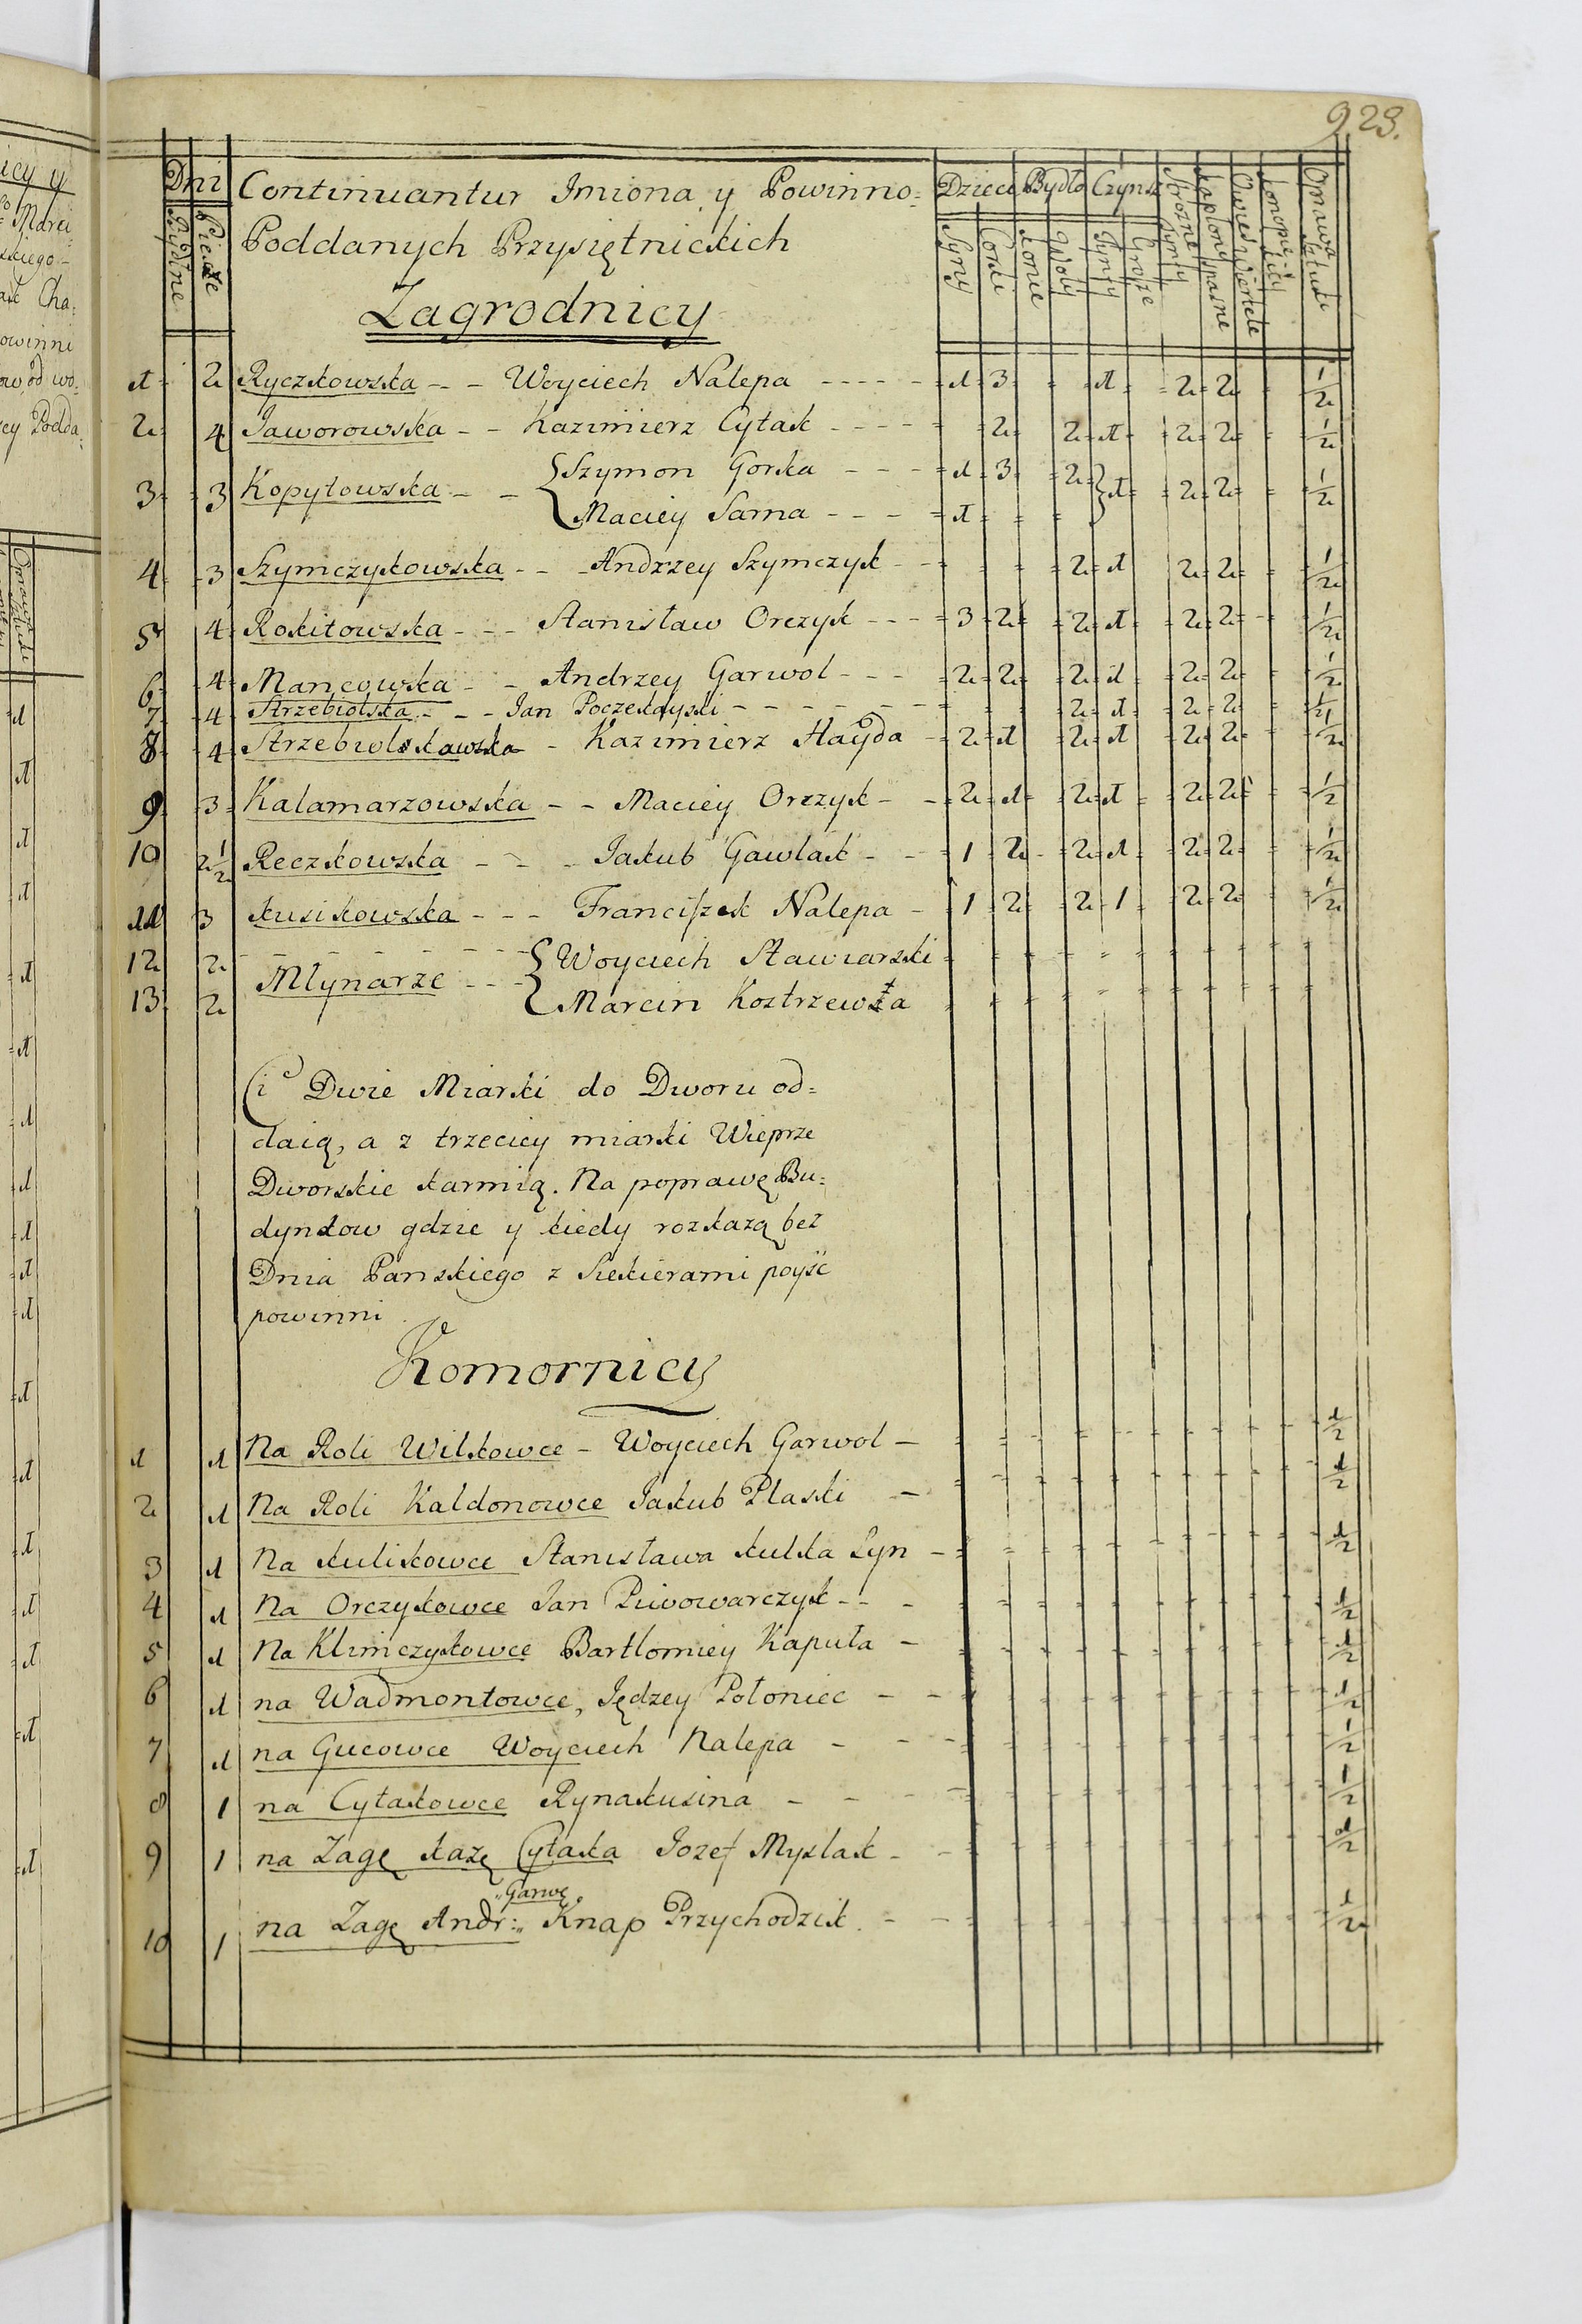 923.
Dni Continuantur Imiona y Powinno= Dzieci Bydło Czynsz
Poddanych Przysiętnickich
Bydlne Piesze Syny Corki Konie Woły Zynty Grosze Strożne Zynty Kapłony spasne Owies Wiertele Konopie Oprawa Sztuki
Zagrodnicy
1 2 Ryczkowska - - Woyciech Nalepa - - - - 1 3 1 2 2 1/2
2 4 Jaworowska - - Kazimierz Cytak - - - - 2 2 1 2 2 1/2
3 3 Kopytowska - - { Szymon Gorka - - - 1 3 2 } 1 2 2 1/2
{ Maciey Sarna - - - 1
4 3 Szymczykowska - - Andrzey Szymczyk - - 2 1 2 2 1/2
5 4 Rokitowska - - - Stanisław Orczyk - - - 3 2 2 1 2 2 1/2
6 4 Mancowska - - Andrzey Garwol - - - 2 2 2 1 2 2 1/2
7 4 Strzebiolska - - - Jan Poczekayski - - - - - - 2 1 2 2 1/2
8 4 Strzebiolskawska - Kazimierz Hayda - 2 1 2 1 2 2 1/2
9 3 Kalamarzowska - - Maciey Orczyk - - 2 1 2 1 2 2 1/2
10 2 1/2 Reczkowska - - - Jakub Gawlak - - 1 2 2 1 2 2 1/2
11 3 Kusikowska - - - Franciszek Nalepa - 1 2 2 1 2 2 1/2
12 2 - - - - - - - { Woyciech Stawiarski
Młynarze - - -
13 2 { Marcin Kostrzewa
Ci Dwie Miarki do Dworu od=
daią, a z trzeciey miarki Wieprze
Dworskie karmią. Na poprawę Bu=
dynkow gdzie y kiedy rozkażą bez
Dnia Panskiego z Siekierami poyść
powinni
Komornicy
1 1 Na Roli Wilkowce - Woyciech Garwol - 1/2
2 1 Na Roli Kaldonowce Jakub Płaski - 1/2
3 1 Na Kulikowce Stanisława Kulka Syn - 1/2
4 1 Na Orczykowce Jan Piwowarczyk - - - 1/2
5 1 Na Klimczykowce Bartlomiey Kaputa - 1/2
6 1 na Wadmontowce, Jędzey Połoniec - - 1/2
7 1 na Gucowce Woyciech Nalepa - - - 1/2
8 1 na Cytakowce Rynakusina - - - 1/2
9 1 na Zagę Kazę Cytaka Jozef Myslak - - 1/2
„Garwę
10 1 na Zagę Andr:„ Knap Przychodzik. - - 1/2